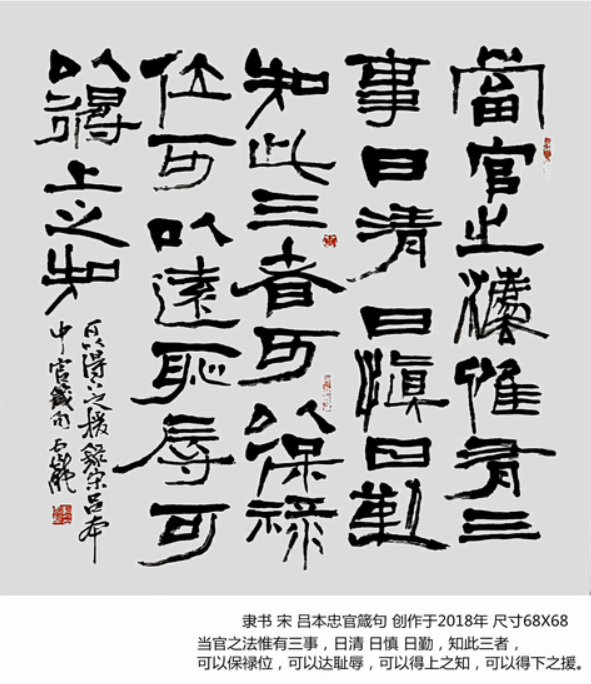 當官之灋惟有三
事曰清曰慎曰勤
知此三者可以保禄
位可以遠恥辱可
以得上之知
可以得下之援錄宋吕本
中官箴句
隶书 宋 吕本忠官箴句 创作于2018年 尺寸68X68
当官之法惟有三事，日清 日慎 日勤，知此三者，
可以保禄位，可以达耻辱，可以得上之知，可以得下之援。